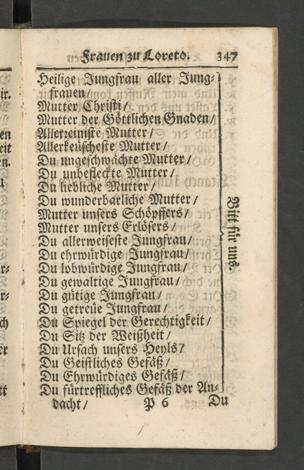 Frauen zu Loreto. 347
Heilige Jungfrau aller Jung-
frauen/
Mutter Christi/
Mutter der Göttlichen Gnaden/
Allerreiniste Mutter/
Allerkeuscheste Mutter/
Du ungeschwächte Mutter/
Du unbefleckte Mutter/
Du liebliche Mutter/
Du wunderbarliche Mutter/
Mutter unsers Schöpffers/
Mutter unsers Erlösers/
Du allerweiseste Jungfrau/
Du ehrwürdige Jungfrau/
Du lobwürdige Jungfrau/
Du gewaltige Jungfrau/
Du gütige Jungfrau/
Du getreue Jungfrau/
Du Spiegel der Gerechtigkeit/
Du Sitz der Weißheit/
Du Ursach unsers Heyls/
Du Geistliches Gefäß/
Du Ehrwürdiges Gefäß/
Du fürtreffliches Gefäß der An-
dacht/ P 6 Du
Bitt für uns.